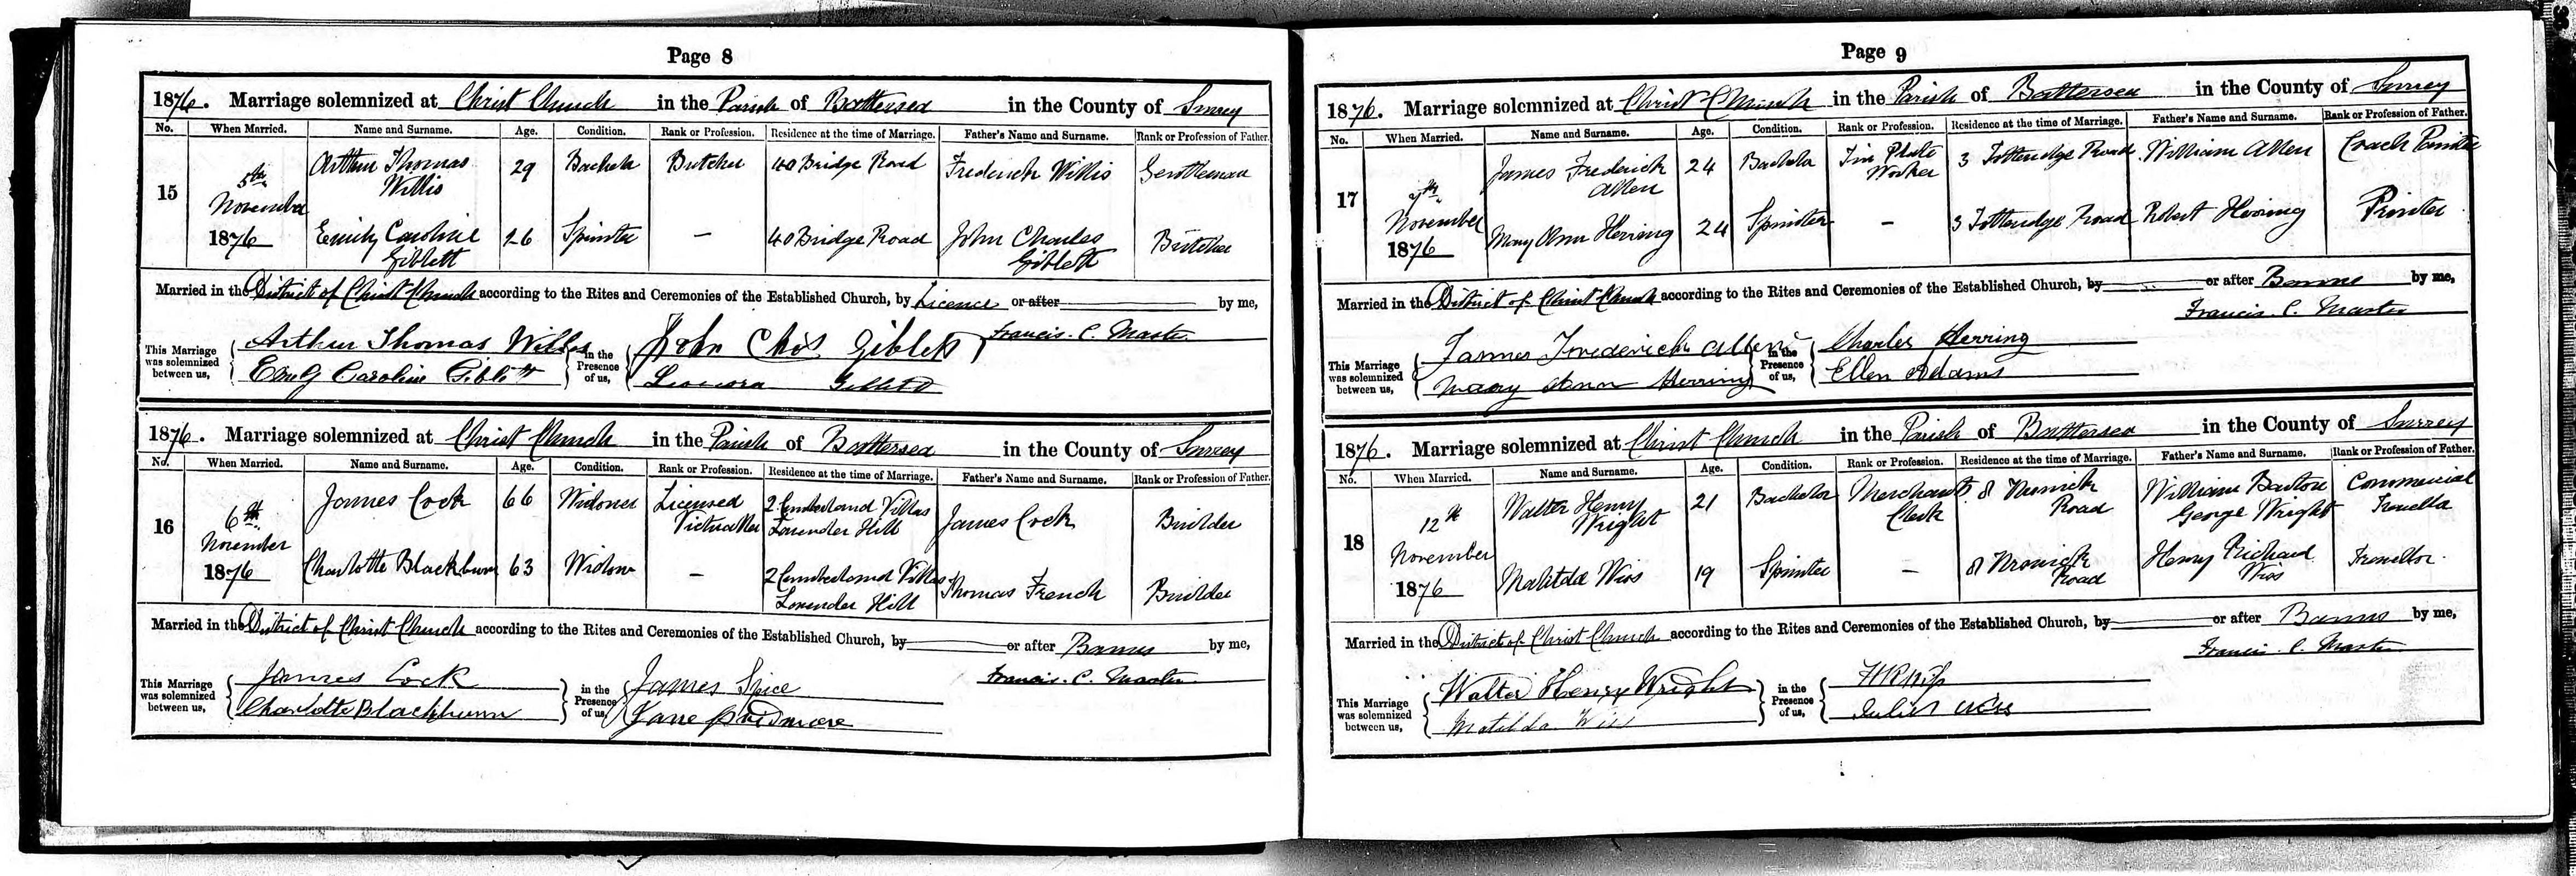 Page 8
1876. Marriage solemnized at Christ Church in the Parish of Battersea in the County of Surrey
No. When Married. Name and Surname. Age. Condition. Rank or Profession. Residence at the time of Marriage. Father's Name and Surname. Rank or Profession of Father.
15 5th November 1876 Arthur Thomas Willis 29 Bachelor Butcher 40 Bridge Road Frederick Willis Gentleman
Emily Caroline Giblett 26 Spinster — 40 Bridge Road John Charles Giblett Butcher
Married in the District of Christ Church according to the Rites and Ceremonies of the Established Church, by Licence or after by me,
Francis. C. Master
This Marriage was solemnized between us, Arthur Thomas Willis in the Presence of us, John Chas Giblett
Emily Caroline Giblett Leonora Giblett
1876. Marriage solemnized at Christ Church in the Parish of Battersea in the County of Surrey
No. When Married. Name and Surname. Age. Condition. Rank or Profession. Residence at the time of Marriage. Father's Name and Surname. Rank or Profession of Father.
16 6th November 1876 James Cock 66 Widower Licensed Victualler 2 Cumberland Villas Lavender Hill James Cock Builder
Charlotte Blackburn 63 Widow — 2 Cumberland Villas Lavender Hill Thomas French Builder
Married in the District of Christ Church according to the Rites and Ceremonies of the Established Church, by or after Banns by me,
Francis. C. Master
This Marriage was solemnized between us, James Cock in the Presence of us, James Spice
Charlotte Blackburn Jane
Page 9
1876. Marriage solemnized at Christ Church in the Parish of Battersea in the County of Surrey
No. When Married. Name and Surname. Age. Condition. Rank or Profession. Residence at the time of Marriage. Father's Name and Surname. Rank or Profession of Father.
17 November 1876 James Frederick Allen 24 Bachelor Tin Plate Worker 3 Totteridge Road William Allen Coach Painter
Mary Ann Herring 24 Spinster — 3 Totteridge Road Robert Herring Printer
Married in the District of Christ Church according to the Rites and Ceremonies of the Established Church, by or after Banns by me,
Francis. C. Master
This Marriage was solemnized between us, James Frederick Allen in the Presence of us, Charles Herring
Mary Ann Herring Ellen Adams
1876. Marriage solemnized at Christ Church in the Parish of Battersea in the County of Surrey
No. When Married. Name and Surname. Age. Condition. Rank or Profession. Residence at the time of Marriage. Father's Name and Surname. Rank or Profession of Father.
18 12th November 1876 Walter Henry Wright 21 Bachelor Merchant's Clerk 8 Road William Barton George Wright Commercial Traveller
Matilda 19 Spinster — 8 Road Henry Richard Traveller
Married in the District of Christ Church according to the Rites and Ceremonies of the Established Church, by or after Banns by me,
Francis. C. Master
This Marriage was solemnized between us, Walter Henry Wright in the Presence of us,
Matilda